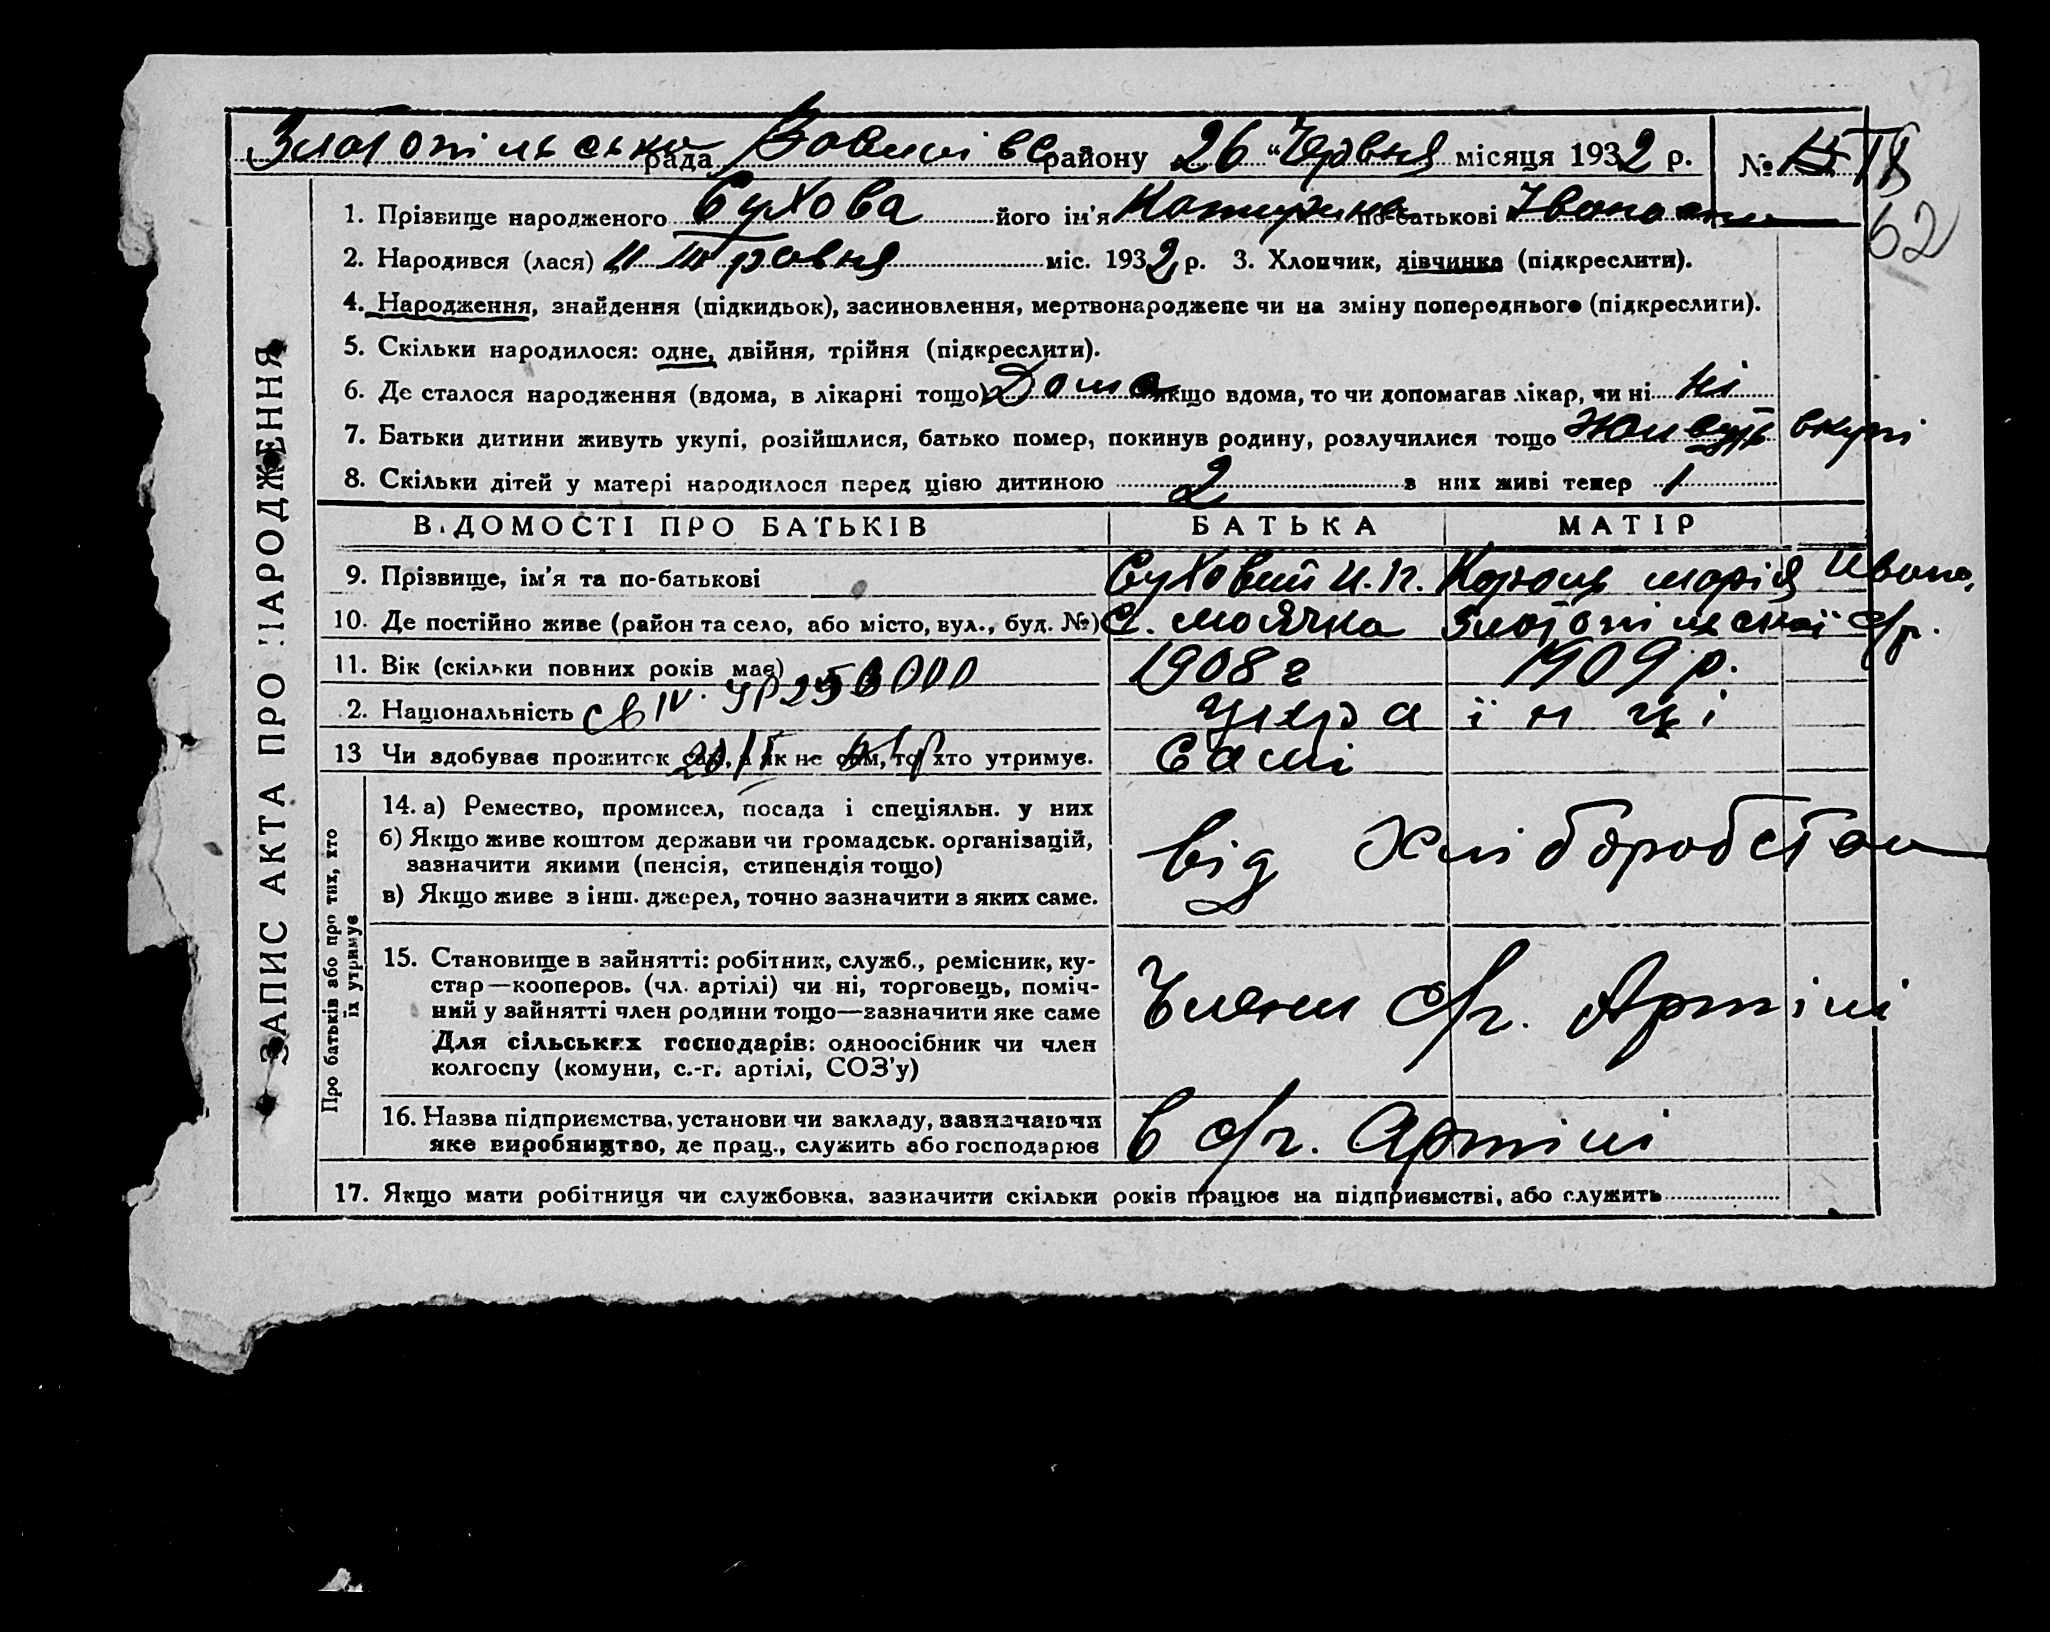 Златопільська рада району 26 "Червня місяця 1932 р. № 15
62
1. Прізвище народженого Сухова його ім'я Катирина по-батькові Івановна
2. Народився (лася) 11 Травня міс. 1932 р. 3. Хлопчик, дівчинка (підкреслити).
4. Народження, знайдення (підкидьок), засиновлення, мертвонароджене чи на зміну попереднього (підкреслити).
5. Скільки народилося: одне, двійня, трійня (підкреслити).
6. Де сталося народження (вдома, в лікарні тощо) Дома якщо вдома, то чи допомагав лікар, чи ні ні
7. Батьки дитини живуть укупі, розійшлися, батько помер, покинув родину, розлучилися тощо Живуть вкупі
8. Скільки дітей у матері народилося перед цією дитиною 2 з них живі тепер 1
ВІДОМОСТІ ПРО БАТЬКІВ БАТЬКА МАТІР
9. Прізвище, ім'я та по-батькові Суховий И.П. Король Марія Ивано.
10. Де постійно живе (район та село, або місто, вул., буд. №) С. Моячка Златопільської с/р.
11. Вік (скільки повних років має) 1908 г 1909 р.
2. Національність Українці
13 Чи здобував прожиток сам, а як не сам, то хто утримує. Самі
14. а) Ремество, промисел, посада і спеціяльн. у них
б) Якщо живе коштом держави чи громадськ. організацій,
зазначити якими (пенсія, стипендія тощо)
в) Якщо живе з інш. джерел, точно зазначити з яких саме.
від Хліборобства
15. Становище в зайнятті: робітник, служб., ремісник, ку-
стар—кооперов. (чл. артілі) чи ні, торговець, поміч-
ний у зайнятті член родини тощо—зазначити яке саме
Для сільських господарів: одноосібник чи член
колгоспу (комуни, с.-г. артілі, СОЗ'у)
Члени с/г. Артілі
16. Назва підприємства, установи чи закладу, зазначаючи
яке виробництво, де прац., служить або господарює
в с/г. Артілі
17. Якщо мати робітниця чи службовка, зазначити скільки років працює на підприємстві, або служить
ЗАПИС АКТА ПРО НАРОДЖЕННЯ
Про батьків або про тих, хто
їх утримує